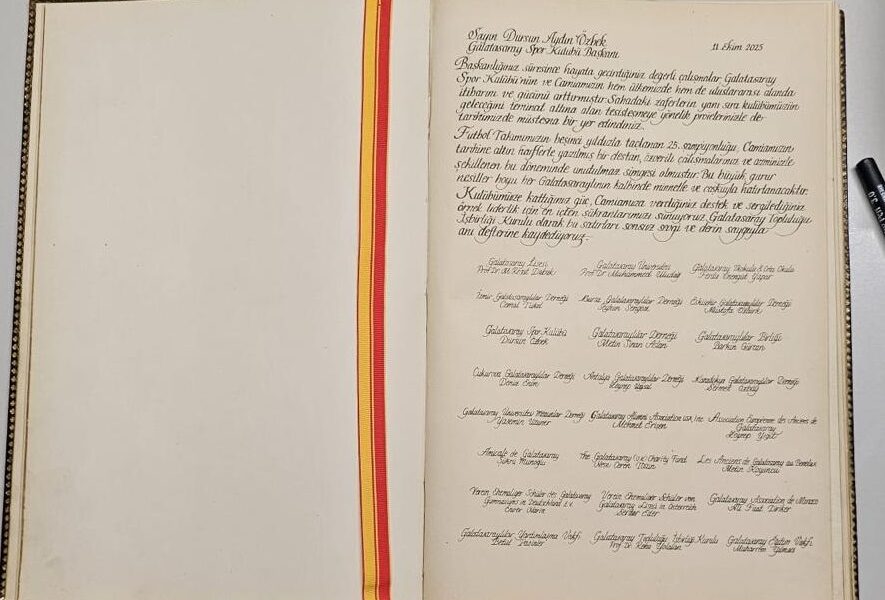 Sayın Dursun Aydın Özbek
Galatasaray Spor Kulübü Başkanı
11 Ekim 2025
Başkanlığınız süresince hayata geçirdiğiniz değerli çalışmalar Galatasaray
Spor Kulübü'nün ve Camiamızın hem ülkemizde hem de uluslararası alanda
itibarını ve gücünü arttırmıştır. Sahadaki zaferlerin yanı sıra kulübümüzün
geleceğini teminat altına alan tesisleşmeye yönelik projelerinizle de
tarihimizde müstesna bir yer edindiniz.
Futbol Takımımızın beşinci yıldızla taçlanan 25. şampiyonluğu, Camiamızın
tarihine altın harflerle yazılmış bir destan, özverili çalışmalarınız ve azminizle
şekillenen bu döneminde unutulmaz simgesi olmuştur. Bu büyük gurur
nesiller boyu her Galatasaraylının kalbinde minnetle ve coşkuyla hatırlanacaktır.
Kulübümüze kattığınız güç, Camiamıza verdiğiniz destek ve sergilediğiniz
örnek liderlik için en içten şükranlarımızı sunuyoruz. Galatasaray Topluluğu
İşbirliği Kurulu olarak bu satırları sonsuz sevgi ve derin saygıyla
anı defterine kaydediyoruz.
Galatasaray Lisesi Galatasaray Üniversitesi Galatasaray İlkokulu & Orta Okulu
Prof. Dr. M. Prof. Dr. Muhammed Uludağ
İzmir Galatasaraylılar Derneği Bursa Galatasaraylılar Derneği Eskişehir Galatasaraylılar Derneği
Cemal Tükel Mustafa Öztürk
Galatasaray Spor Kulübü Galatasaraylılar Derneği Galatasaraylılar Birliği
Dursun Özbek Metin Sinan Aslan
Çukurova Galatasaraylılar Derneği Antalya Galatasaraylılar Derneği Karadeniz Galatasaraylılar Derneği
Deniz Zeynep
Galatasaray Üniversitesi Mezunlar Derneği Galatasaray Alumni Association USA, Inc Association Européenne des Anciens de
Galatasaray
Yasemin Mehmet Zeynep Yiğit
Amicale de Galatasaray The Galatasaray (UK) Charity Fund Les Anciens de Galatasaray au Benelux
Ceren Metin
Verein Ehemaliger Schüler des Galatasaray Verein Ehemaliger Schüler von Galatasaray Association de Monaco
Gymnasiums in Deutschland e.V. Galatasaray Lisesi in Österreich Ali Fuat
Serdar
Galatasaraylılar Yardımlaşma Vakfı Galatasaray Topluluğu İşbirliği Kurulu Galatasaray Eğitim Vakfı
Betül Prof. Dr. Muharrem